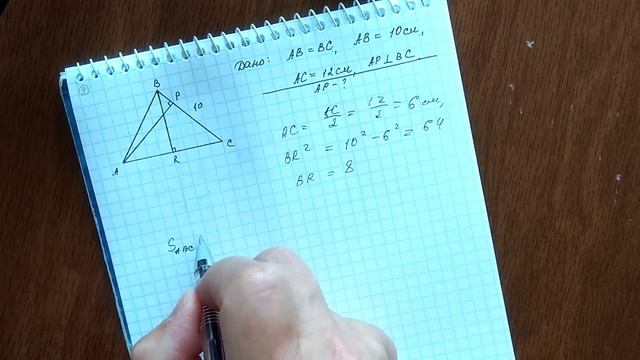 9
Дано: AB = BC, AB = 10 см,
AC = 12 см, AP ⊥ BC
AP - ?
B
P
10
A
R
C
AC = AC/2 = 12/2 = 6 см,
BR² = 10² - 6² = 64
BR = 8
S ABC